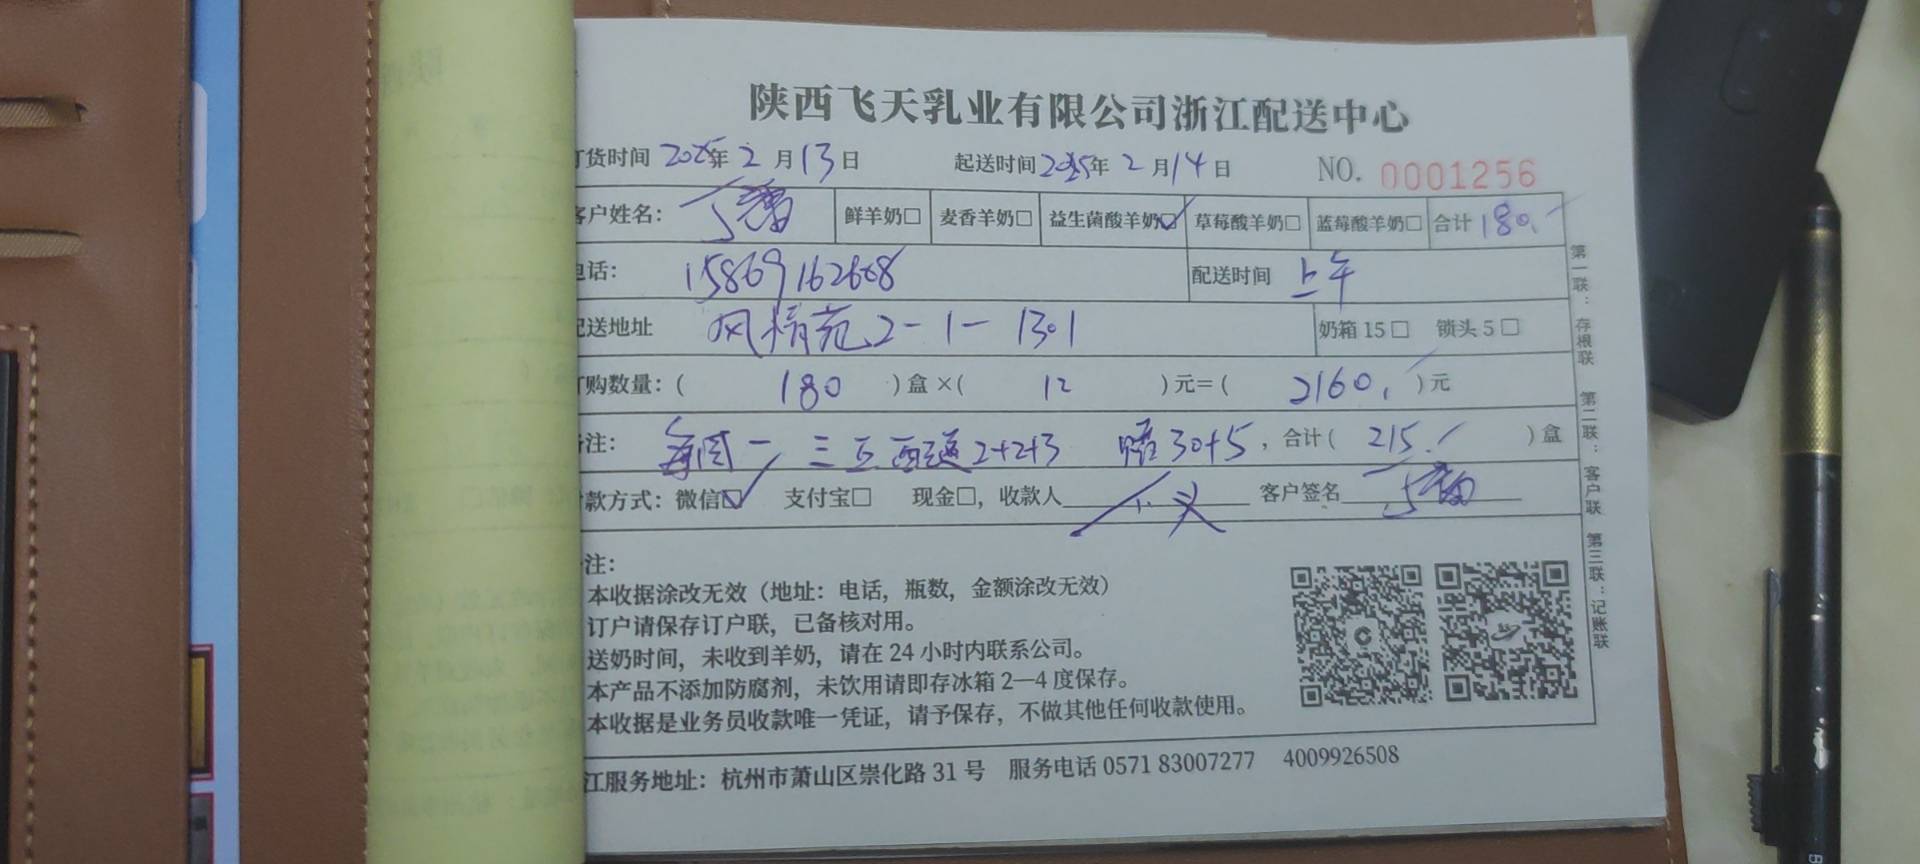 陕西飞天乳业有限公司浙江配送中心
订货时间 2025年 2 月 13 日 起送时间 2025年 2 月 14 日 NO. 0001256
客户姓名: 丁 鲜羊奶□ 麦香羊奶□ 益生菌酸羊奶☑ 草莓酸羊奶□ 蓝莓酸羊奶□ 合计 180.
电话: 配送时间 上午
配送地址 风情苑 2-1-1301 奶箱 15 □ 锁头 5 □
订购数量:( 180 )盒 ×( 12 )元=( 2160. )元
备注: 每周一 三 五 配送 2+2+3 30+5, 合计( 215. )盒
付款方式: 微信☑ 支付宝□ 现金□, 收款人 客户签名 丁
备注:
本收据涂改无效(地址: 电话, 瓶数, 金额涂改无效)
订户请保存订户联, 已备核对用。
送奶时间, 未收到羊奶, 请在 24 小时内联系公司。
本产品不添加防腐剂, 未饮用请即存冰箱 2—4 度保存。
本收据是业务员收款唯一凭证, 请予保存, 不做其他任何收款使用。
江服务地址: 杭州市萧山区崇化路 31 号 服务电话 0571 83007277 4009926508
第一联: 存根联 第二联: 客户联 第三联: 记账联